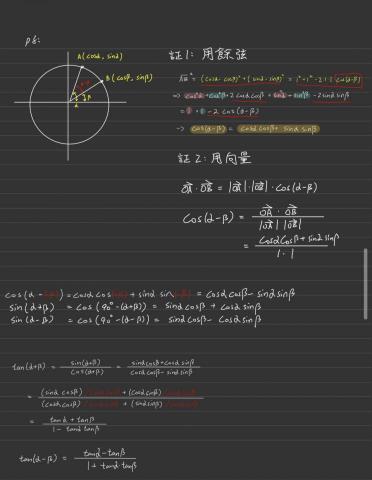 pf:
A(cosα, sinα)
B(cosβ, sinβ)
証1: 用餘弦
AB² = (cosα-cosβ)²+(sinα-sinβ)² = 1²+1²-2·1·1 cos(α-β)
⇒ cos²α+cos²β-2cosαcosβ+sin²α+sin²β-2sinαsinβ
=1+1-2cos(α-β)
→ cos(α-β) = cosαcosβ+sinαsinβ
証2: 用向量
OA·OB = |OA|·|OB|·cos(α-β)
cos(α-β) = OA·OB / |OA||OB|
= cosαcosβ+sinαsinβ / 1·1
cos(α-(-β)) = cosαcos(-β)+sinαsin(-β) = cosαcosβ-sinαsinβ
sin(α+β) = cos(90°-(α+β)) = sinαcosβ+cosαsinβ
sin(α-β) = cos(90°-(α-β)) = sinαcosβ-cosαsinβ
tan(α+β) = sin(α+β) / cos(α+β) = sinαcosβ+cosαsinβ / cosαcosβ-sinαsinβ
= (sinαcosβ) + (cosαsinβ) / (cosαcosβ) + (sinαsinβ)
= tanα+tanβ / 1-tanαtanβ
tan(α-β) = tanα-tanβ / 1+tanαtanβ